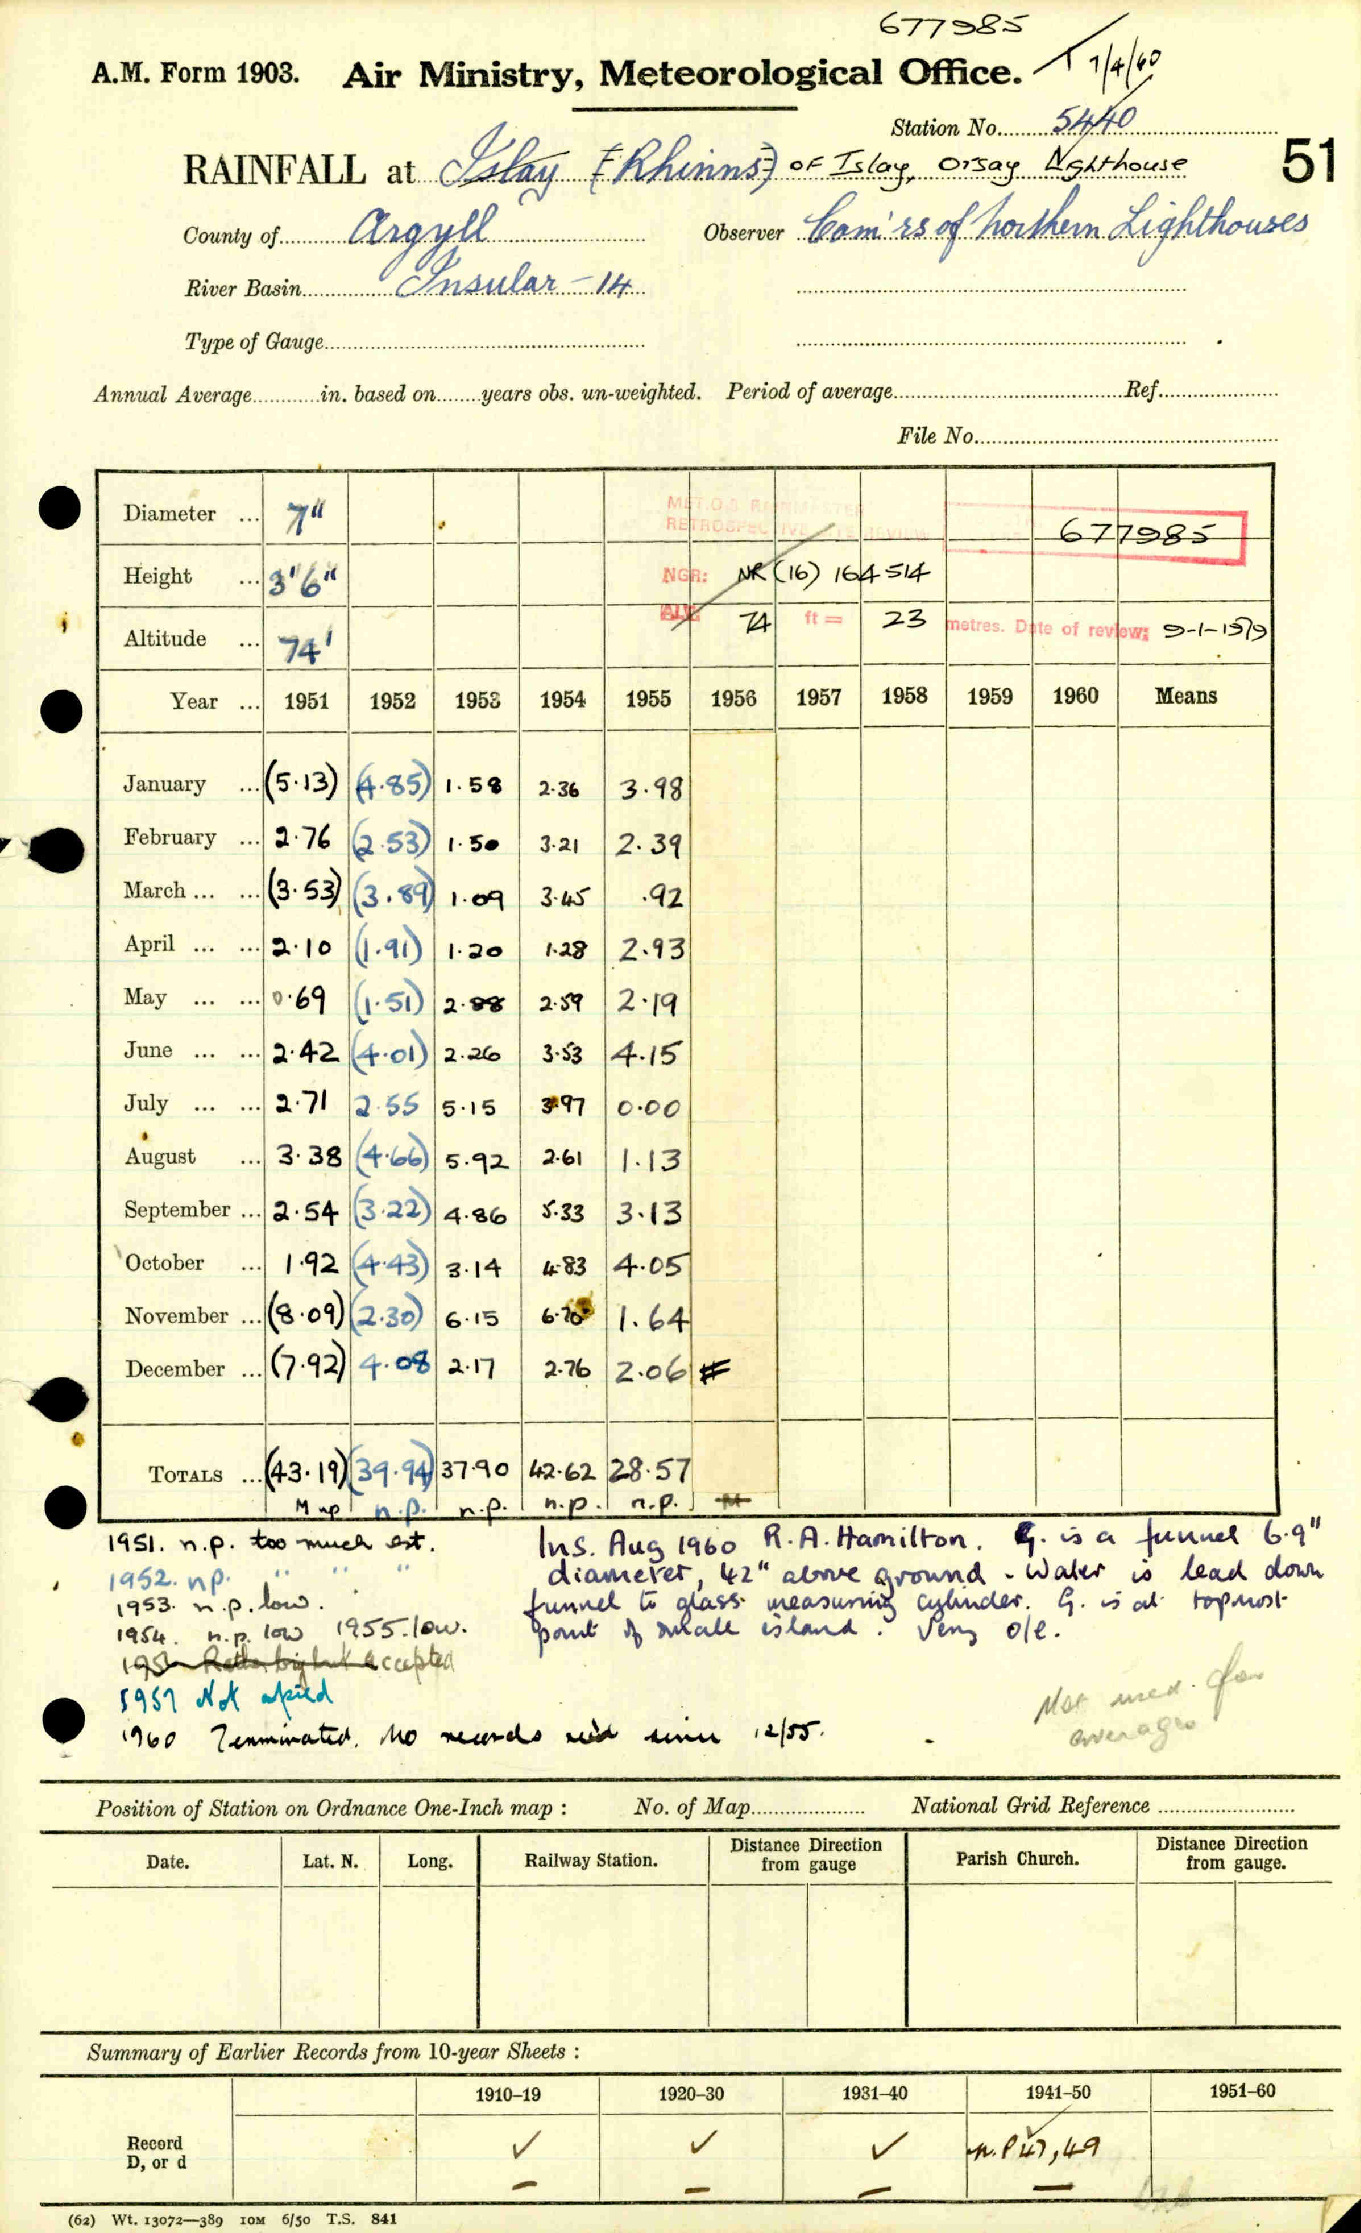 677985
A.M. Form 1903. Air Ministry, Meteorological Office. 7/4/60
Station No. 5440
RAINFALL at Islay (Rhinns) of Islay, Orsay Lighthouse 51
County of Argyll Observer Com'rs of Northern Lighthouses
River Basin Insular - 14
Type of Gauge
Annual Average in. based on years obs. un-weighted. Period of average Ref.
File No.
Diameter ... 7" MET.O.8 RAINMASTER
RETROSPECTIVE SITE REVIEW 677985
Height ... 3'6" NGR: NR (16) 164 514
Altitude ... 74' ALT. 74 ft = 23 metres. Date of review: 9-1-1979
Year ... 1951 1952 1953 1954 1955 1956 1957 1958 1959 1960 Means
January ... (5.13) (4.85) 1.58 2.36 3.98
February ... 2.76 (2.53) 1.50 3.21 2.39
March ... ... (3.53) (3.89) 1.09 3.45 .92
April ... ... 2.10 (1.91) 1.20 1.28 2.93
May ... ... 0.69 (1.51) 2.88 2.59 2.19
June ... ... 2.42 (4.01) 2.26 3.53 4.15
July ... ... 2.71 2.55 5.15 3.97 0.00
August ... 3.38 (4.66) 5.92 2.61 1.13
September ... 2.54 (3.22) 4.86 5.33 3.13
October ... 1.92 (4.43) 3.14 4.83 4.05
November ... (8.09) (2.30) 6.15 6.70 1.64
December ... (7.92) 4.08 2.17 2.76 2.06 #
TOTALS ... (43.19) (39.94) 37.90 42.62 28.57
M np n.p. n.p. n.p. n.p. M
1951. n.p. too much est.
1952. n.p. " " "
1953. n.p. low.
1954. n.p. low 1955. low.
accepted
1957 Not
1960 Terminated. No records rec'd since 12/55.
Ins. Aug 1960 R.A. Hamilton. G. is a funnel 6.9"
diameter, 42" above ground - Water is lead down
funnel to glass measuring cylinder. G. is at topmost
point of small island. Very o/e.
Not used for
averages
Position of Station on Ordnance One-Inch map : No. of Map National Grid Reference
Date. Lat. N. Long. Railway Station. Distance Direction from gauge Parish Church. Distance Direction from gauge.
Summary of Earlier Records from 10-year Sheets :
1910–19 1920–30 1931–40 1941–50 1951–60
Record
D, or d ✓ ✓ ✓ n.p 47, 49
– – – –
(62) Wt. 13072—389 10M 6/50 T.S. 841